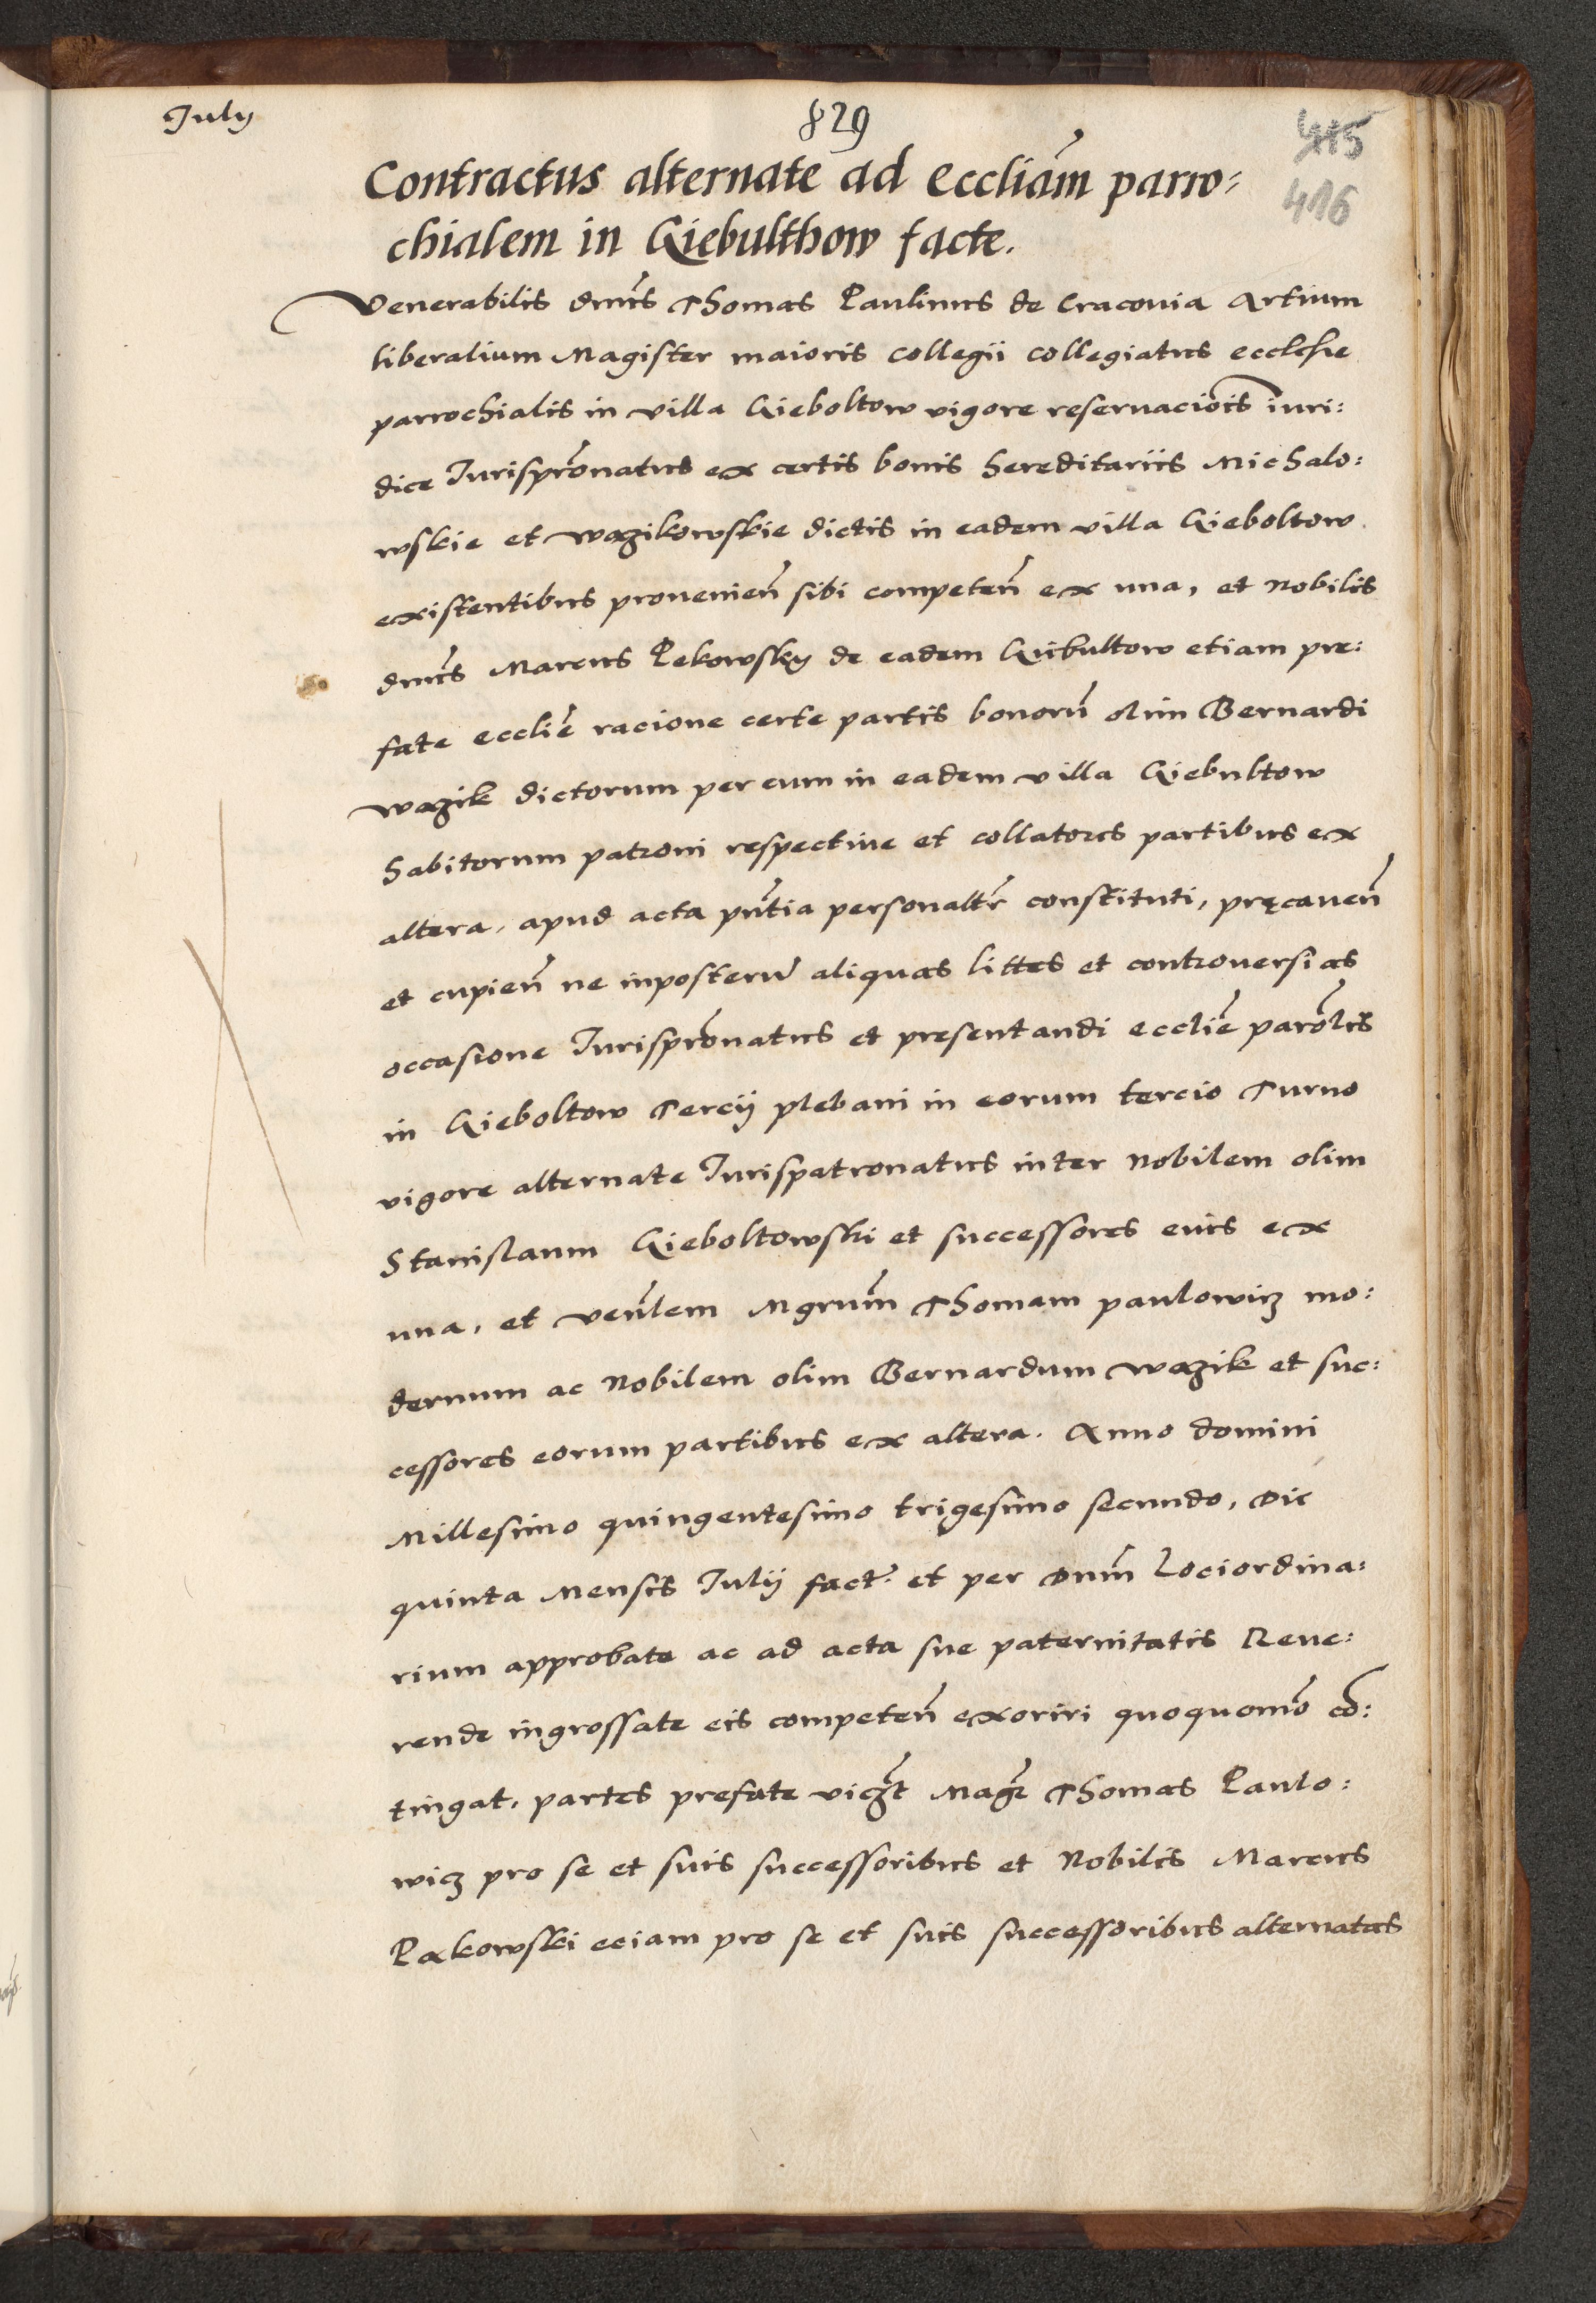 July
829
415
416
Contractus alternate ad Eccliam parro=
chialem in Giebulthow facte.
Venerabilis dnus Thomas Paulinus de Cracovia Artium
liberalium Magister maioris Collegii Collegiatus ecclesie
parrochialis in villa Gieboltow vigore reservaciois iuri=
dice Jurispronatus ex certis bonis hereditariis Michalo=
wskie et Wazikowskie dictis in eadem villa Gieboltow
existentibus provenien sibi competen ex una, et Nobilis
dnus Marcus Pekowsky de eadem Giebultow etiam pre=
fate ecclie racione certe partis bonoru olim Bernardi
Wazik dictorum per eum in eadem villa Giebultow
habitorum patroni respective et collatores partibus ex
altera, apud acta pntia personaltr constituti, pręcaven
et cupien ne inposteru aliquas littes et controversias
occasione Jurispronatus et presentandi ecclie parolis
in Gieboltow Tercij plebani in eorum tercio Turno
vigore alternate Jurispatronatus inter Nobilem olim
Stanislaum Gieboltowski et successores eius ex
una, et venlem Mgrum Thomam paulowicz mo=
dernum ac Nobilem olim Bernardum Wazik et suc=
cessores eorum partibus ex altera. Anno domini
Millesimo quingentesimo trigesimo secundo, Die
quinta Mensis Julij fact. et per Dnum Lociordina=
rium approbate ac ad acta sue paternitatis Reve=
rende ingrossate eis competen exoriri quoquomo co=
tingat, partes prefate viczt Magr Thomas Paulo=
wicz pro se et suis successoribus et Nobilis Marcus
Pakowski eciam pro se et suis successoribus alternatas